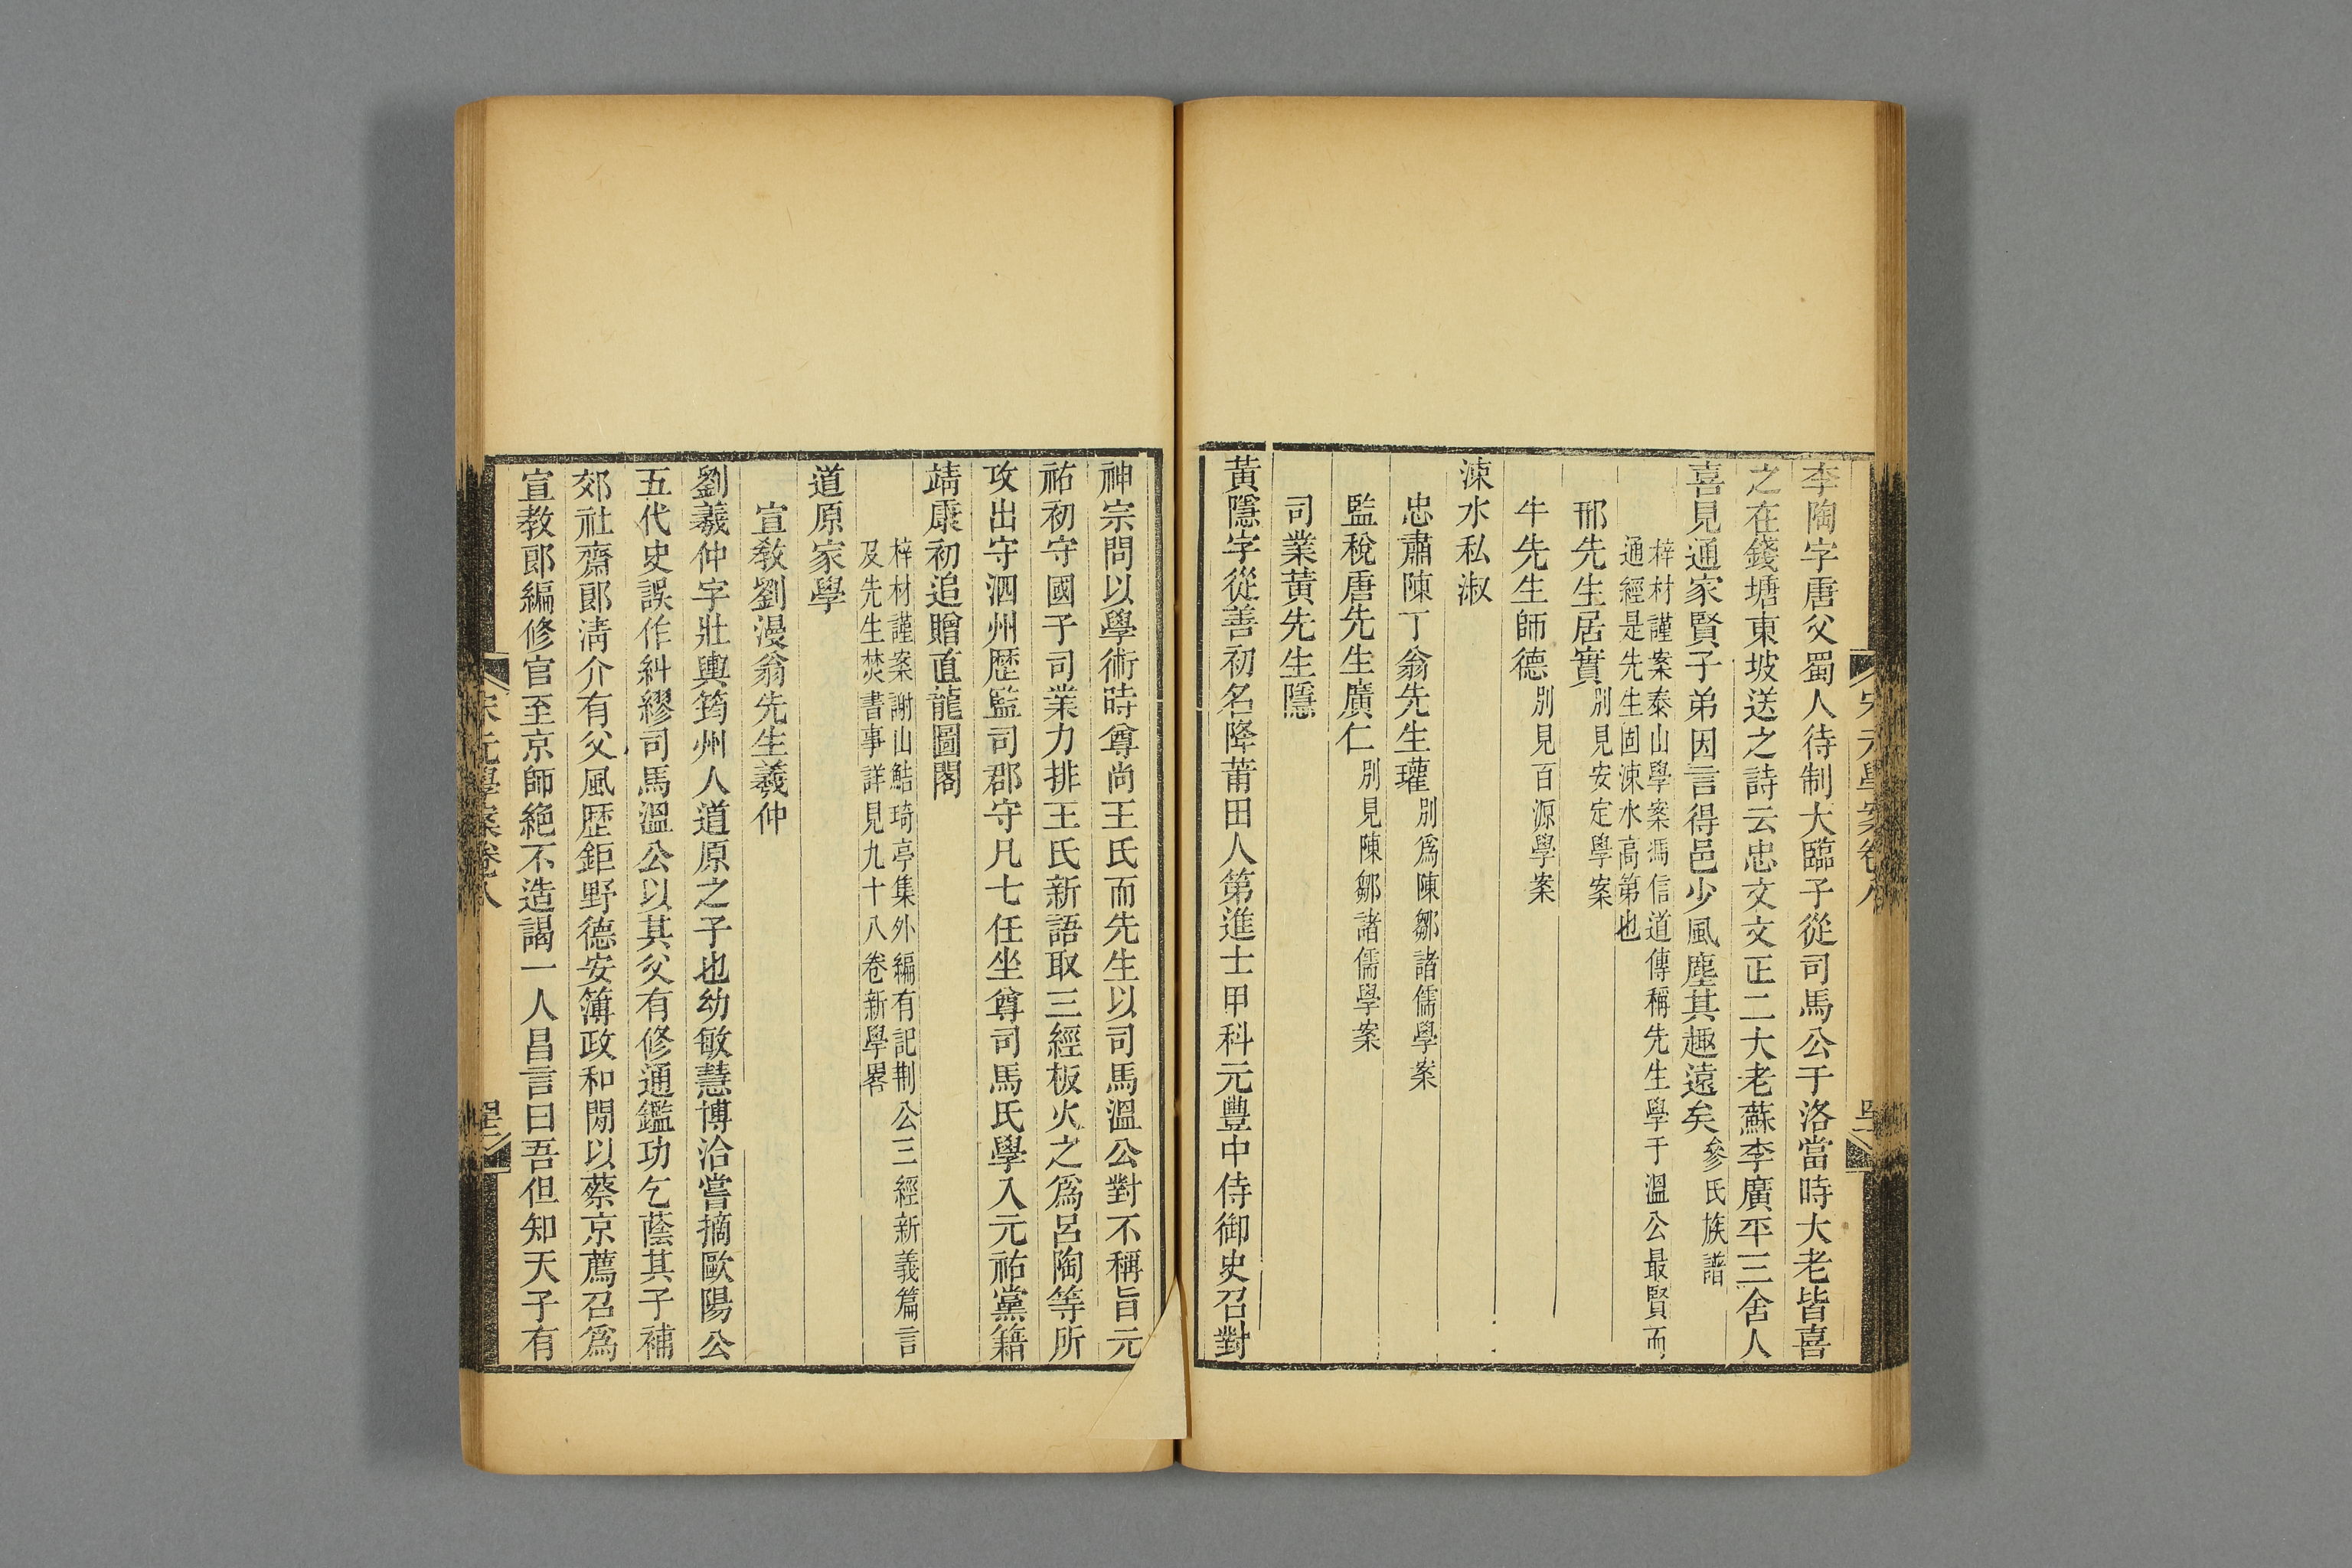 李陶字唐父蜀人待制大臨子從司馬公于洛當時大老皆喜
之在錢塘東坡送之詩云忠文文正二大老蘇李廣平三舍人
喜見通家賢子弟因言得邑少風塵其趣遠矣參氏族譜
梓材謹案泰山學案馮信道傳稱先生學于溫公最賢而
通經是先生固涑水高第也
邢先生居實別見安定學案
牛先生師德別見百源學案
涑水私淑
忠肅陳了翁先生瓘別爲陳鄒諸儒學案
監稅唐先生廣仁別見陳鄒諸儒學案
司業黃先生隱
黃隱字從善初名降莆田人第進士甲科元豐中侍御史召對
神宗問以學術時尊尚王氏而先生以司馬溫公對不稱旨元
祐初守國子司業力排王氏新語取三經板火之爲呂陶等所
攻出守泗州歷監司郡守凡七任坐尊司馬氏學入元祐黨籍
靖康初追贈直龍圖閣
梓材謹案謝山鮚琦亭集外編有記荆公三經新義篇言
及先生焚書事詳見九十八卷新學畧
道原家學
宣教劉漫翁先生羲仲
劉羲仲字壯輿筠州人道原之子也幼敏慧博洽嘗摘歐陽公
五代史誤作糾繆司馬溫公以其父有修通鑑功乞蔭其子補
郊社齋郎淸介有父風歷鉅野德安簿政和閒以蔡京薦召爲
宣教郎編修官至京師絶不造謁一人昌言曰吾但知天子有
宋元學案卷八